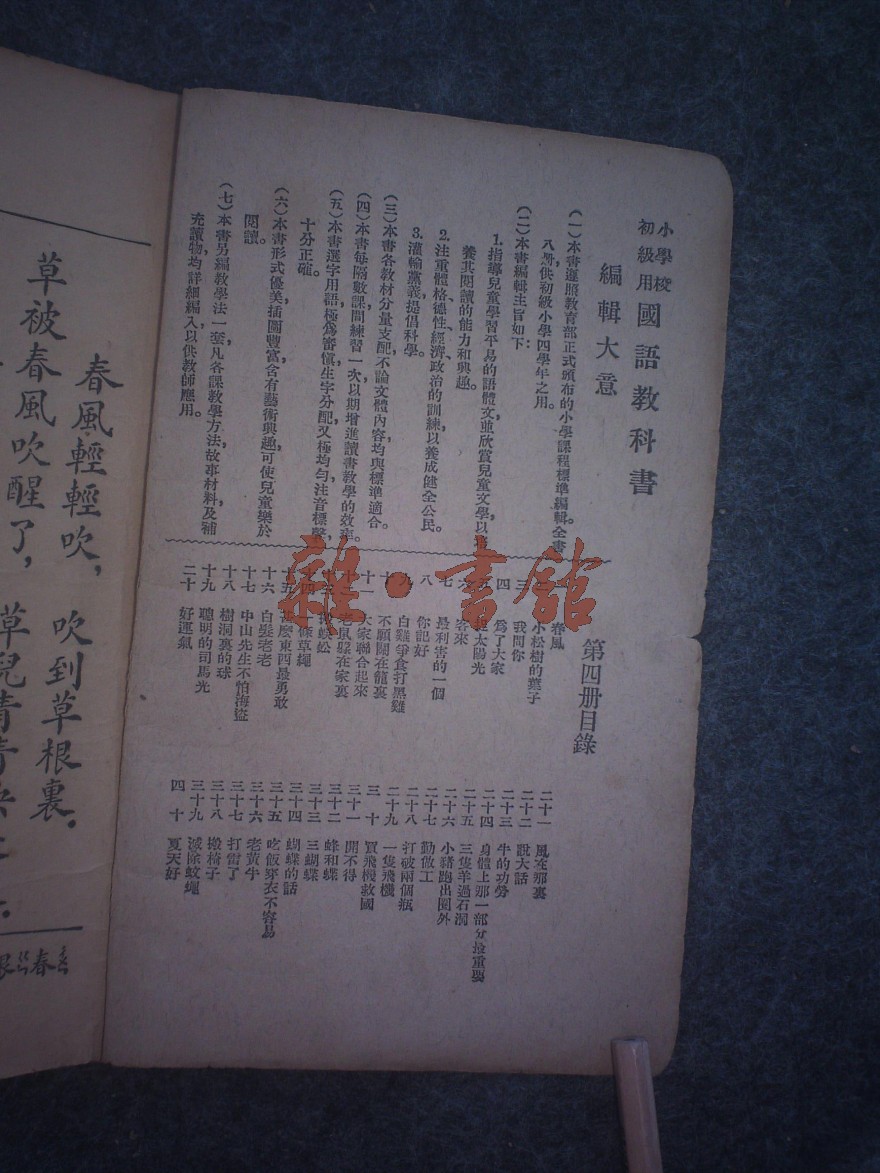 小學校
初級用
國語教科書
編輯大意
(一)本書遵照教育部正式頒布的小學課程標準編輯。全書
八册,供初級小學四學年之用。
(二)本書編輯主旨如下:
1.指導兒童學習平易的語體文,並欣賞兒童文學,以
養其閱讀的能力和興趣。
2.注重體格、德性、經濟、政治的訓練,以養成健全公民。
3.灌輸黨義,提倡科學。
(三)本書各教材分量支配,不論文體內容,均與標準適合。
(四)本書每隔數課,間練習一次,以期增進讀書教學的效率。
(五)本書選字用語,極爲審愼;生字分配,又極均勻;注音標聲,
十分正確。
(六)本書形式優美,插圖豐富,含有藝術興趣,可使兒童樂於
閱讀。
(七)本書另編教學法一套,凡各課教學方法,故事材料及補
充讀物,均詳細編入,以供教師應用。
第四册目錄
春風
小松樹的葉子
三 我問你
四 爲了大家
太陽光
客來
七 最利害的一個
八 你記好
九 白雞爭食打黑雞
十 不願關在籠裏
十一 大家聯合起來
老鼠躲在家裏
蜈蚣
條草繩
十五 甚麼東西最勇敢
十六 白髮老老
十七 中山先生不怕海盜
十八 樹洞裏的球
十九 聰明的司馬光
二十 好運氣
二十一 風在那裏
二十二 說大話
二十三 牛的功勞
二十四 身體上那一部分最重要
二十五 三隻羊過石澗
二十六 小豬跑出圈外
二十七 勤做工
二十八 打破兩個瓶
二十九 一隻飛機
三十 買飛機救國
三十一 開不得
三十二 蜂和蝶
三十三 三蝴蝶
三十四 蝴蝶的話
三十五 吃飯穿衣不容易
三十六 老黃牛
三十七 打雷了
三十八 搬椅子
三十九 滅除蚊蠅
四十 夏天好
雜·書館
春風輕輕吹, 吹到草根裏.
草被春風吹醒了, 草兒青青
春
根